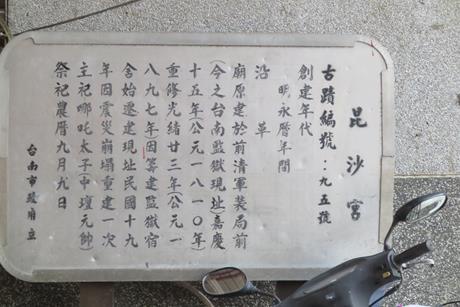 昆沙宮
古蹟編號：九五號
創建年代
明永曆年間
沿革
廟原建於前清軍裝局前
(今之台南監獄現址)嘉慶
十五年(公元一八一〇年)
重修光緒廿三年(公元一
八九七年)因籌建監獄宿
舍始遷建現址民國十九
年因震災崩塌重建一次
主祀哪吒太子(中壇元帥)
祭祀農曆九月九日
台南市政府立